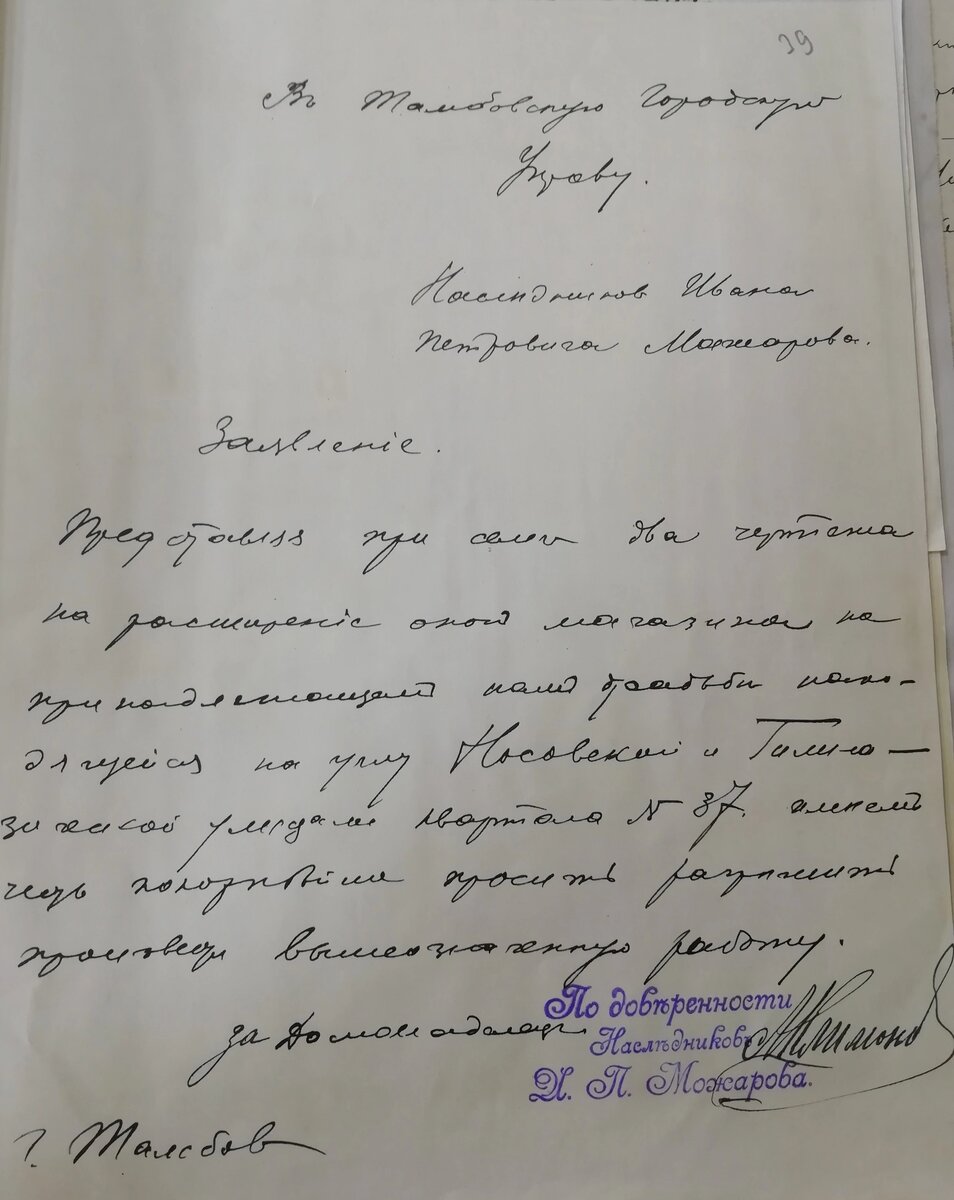 39
Въ Тамбовскую Городскую
Управу.
Наслѣдников Ивана
Петровича Можарова.
Заявленіе.
Представляя при семъ два чертежа
на расширеніе окой магазина на
принадлежащей намъ усадьбы нахо-
дящейся на углу Носовской и Гимна-
зической улицами квартала N 37. имеемъ
честь покорнейше просить разрешить
произвести вышеозначенную работу.
за Домовладельца
По довѣренности
Наслѣдниковъ
И. П. Можарова.
АКлимонов
г. Тамбов